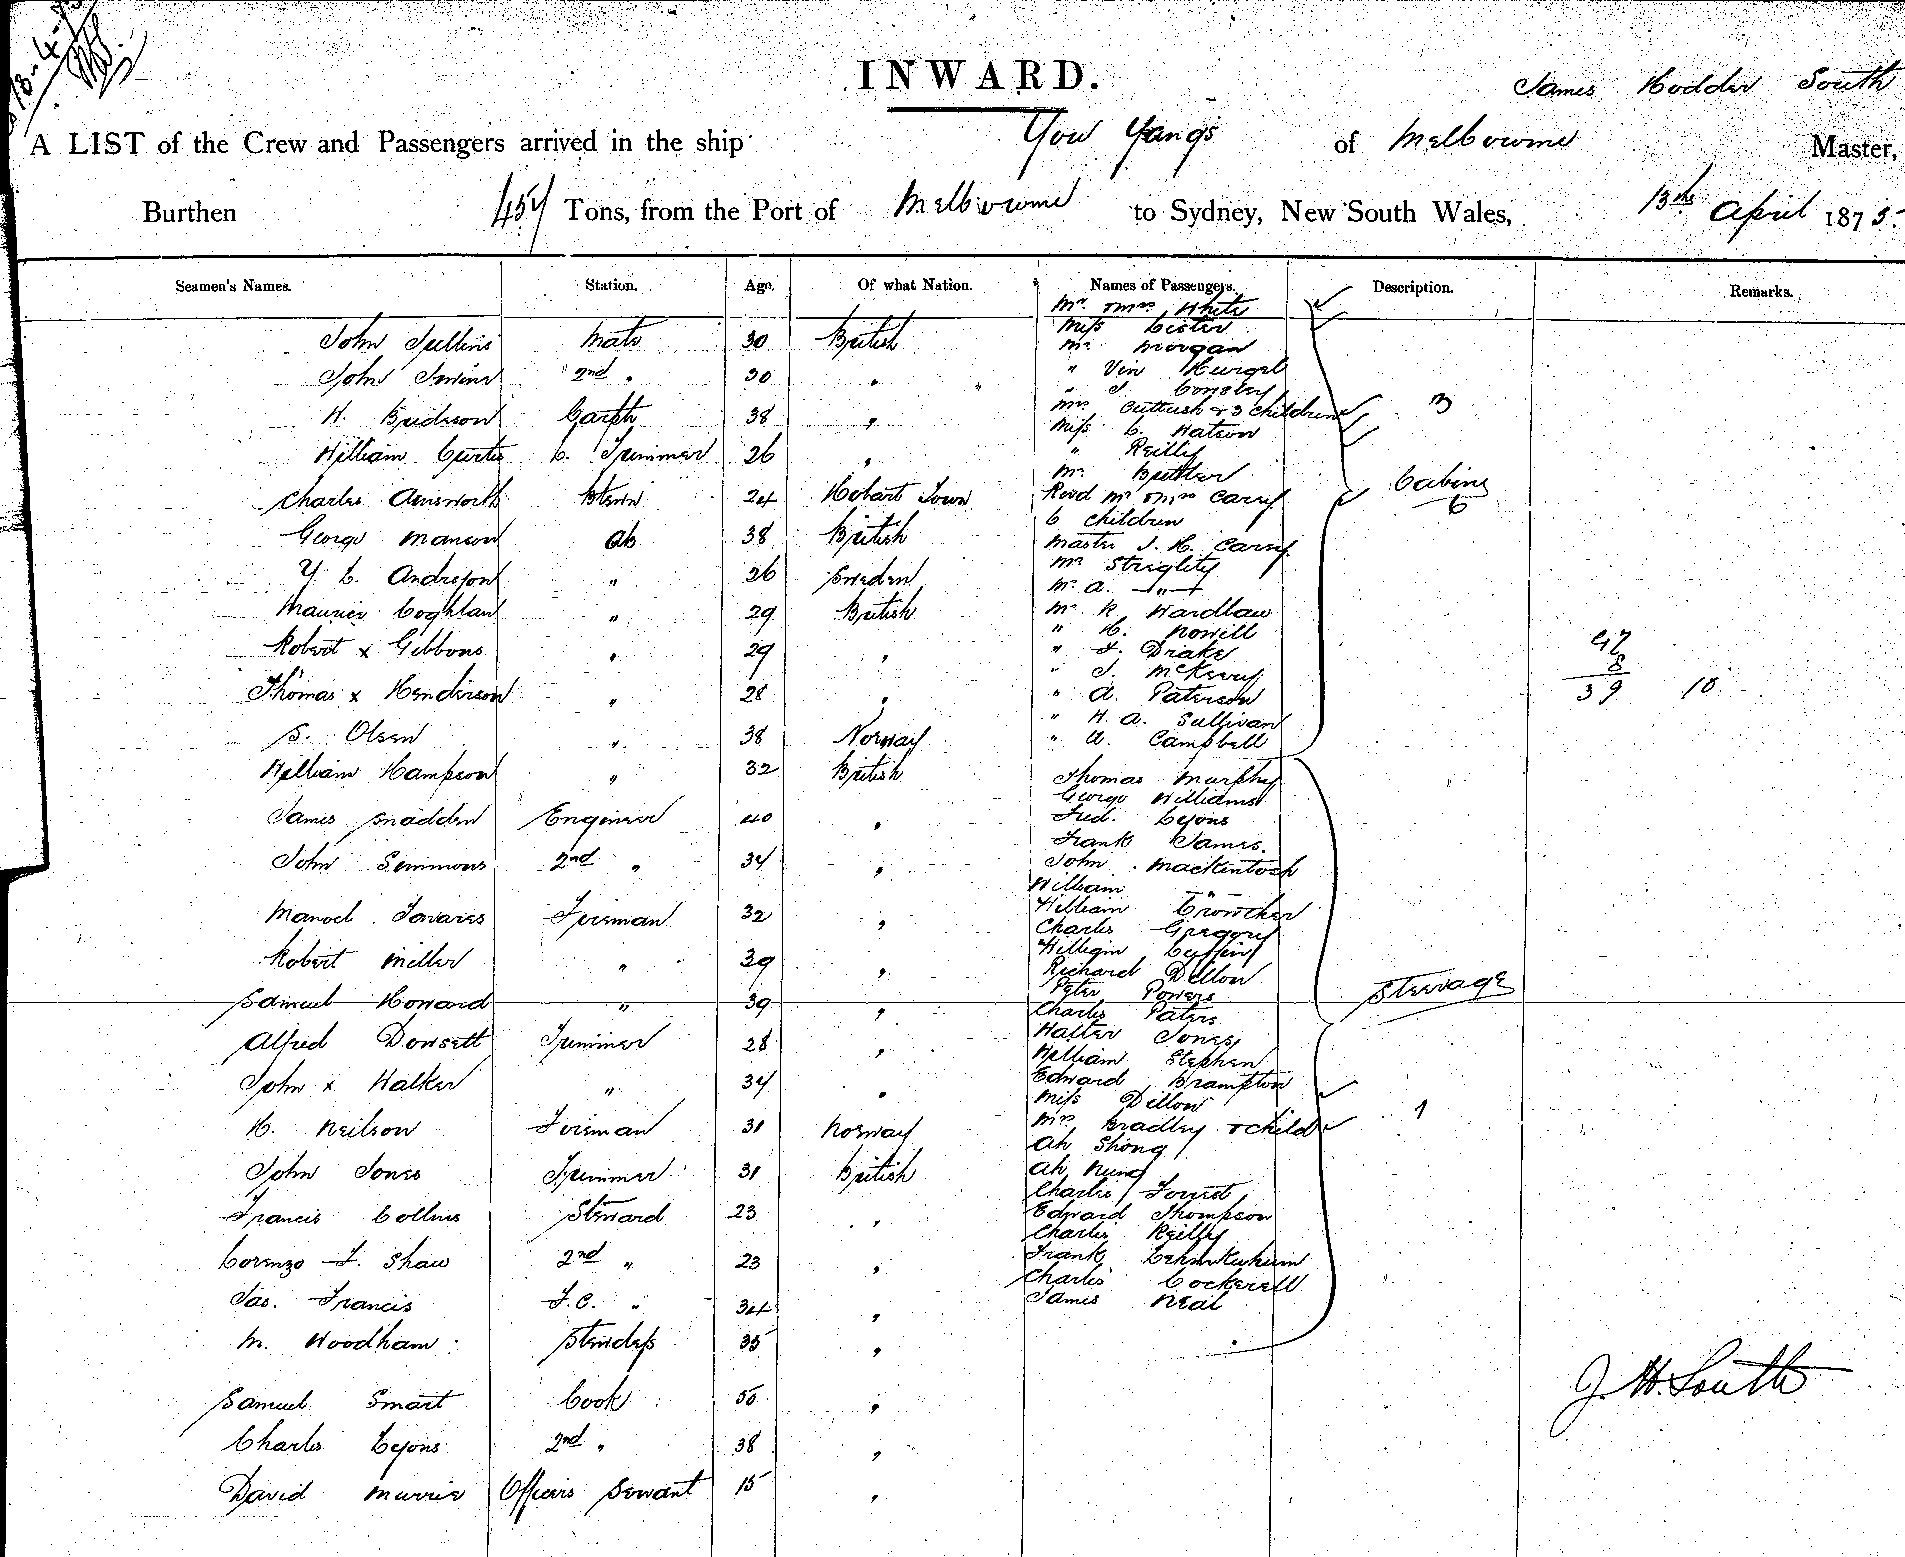 13-4-
INWARD.
James Hodder South
A LIST of the Crew and Passengers arrived in the ship You Yangs of Melbourne Master,
Burthen 457 Tons, from the Port of Melbourne to Sydney, New South Wales, 13th April 1875
Seamen's Names. Station. Age. Of what Nation. Names of Passengers. Description. Remarks.
John Jullins Mate 30 British
John 2nd " 30 "
H. Bridson Carptr 38 "
William Curtis C. Trimmer 26 "
Charles Ainsworth 24 Hobart Town
George Manson Ab 38 British
Y. L. Andreson " 26 Sweden
Maurice Coghlan " 29 British
Robert x Gibbons " 29 "
Thomas x Henderson " 28 "
S. Olsen " 38 Norway
William Hampson " 32 British
James Madden Engineer 40 "
John Simmons 2nd " 34 "
Manoel Tavares Fireman 32 "
Robert Miller " 39 "
Samuel Howard " 39 "
Alfred Dowsett Trimmer 28 "
John x Walker " 34 "
H. Neilson Fireman 31 Norway
John Jones Trimmer 31 British
Francis Collins Steward 23 "
Lorenzo F. Shaw 2nd " 23 "
Jas. Francis F.C. " 34 "
M. Woodham Stewdess 35 "
Samuel Smart Cook 55 "
Charles Lyons 2nd " 38 "
David Murrie Officers Servant 15 "
Mr & Mrs White
Miss Lister
Mr Morgan
" Vin
" J. Consley
Mrs Cuttush & 3 children
Miss C. Watson
" Reilly
Mr Buttler
Revd Mr & Mrs Carey
6 children
Master J. H. Carey
Mr
Mr A. "
Mr R Wardlaw
" H. Nowill
" F. Drake
" J. McKenny
" A. Paterson
" H. A. Sullivan
" A. Campbell
Thomas Murphy
George Williams
Fred. Lyons
Frank James.
John Mackintosh
William "
William Crowther
Charles Gregory
William
Richard Dillon
Peter Powers
Charles Paters
Walter Jones
William Stephen
Edward Brampton
Miss Dillon
Mrs Bradley & child
Ah Shong
Ah Hung
Charles Forrest
Edward Thompson
Charles Reilly
Frank
Charles Cockerell
James Neal
3
Cabins
6
Steerage
1
47
8
39 10
J. H. South